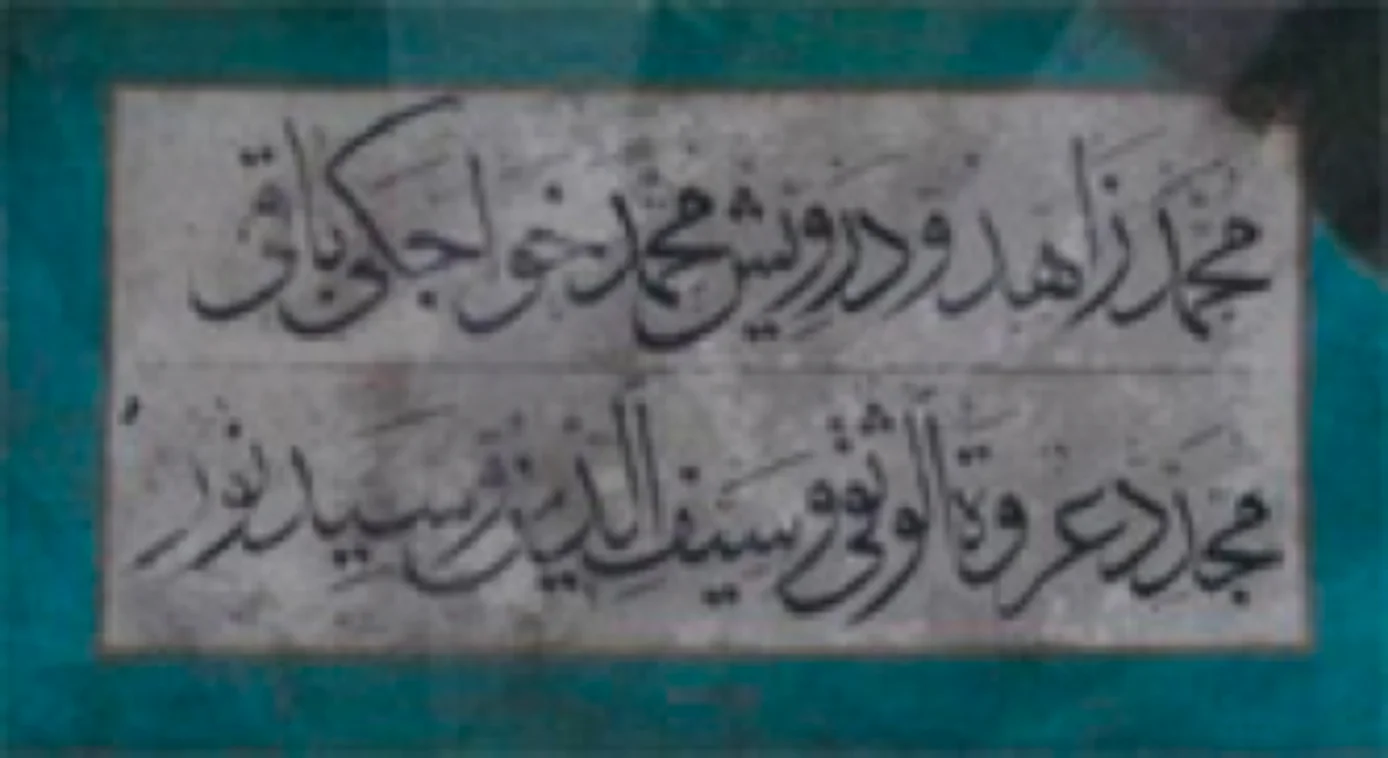 محمد زاهد و درويش محمد خواجكى باقى
مجدد عروة الوثقى و سيف الدين و سيد نور